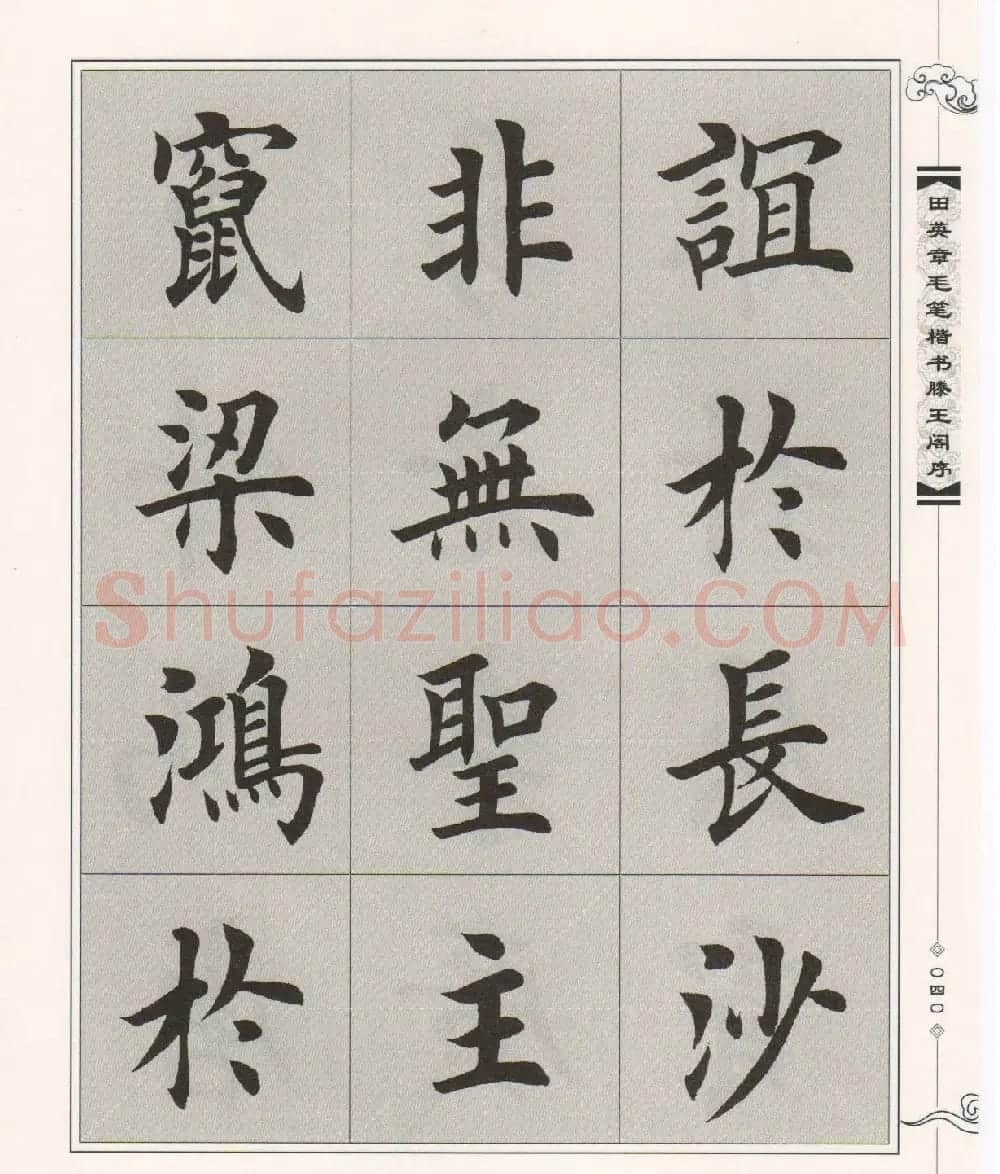 誼於長沙
非無聖主
竄梁鴻於
田英章毛笔楷书滕王阁序
〇四〇
Shufaziliao.COM